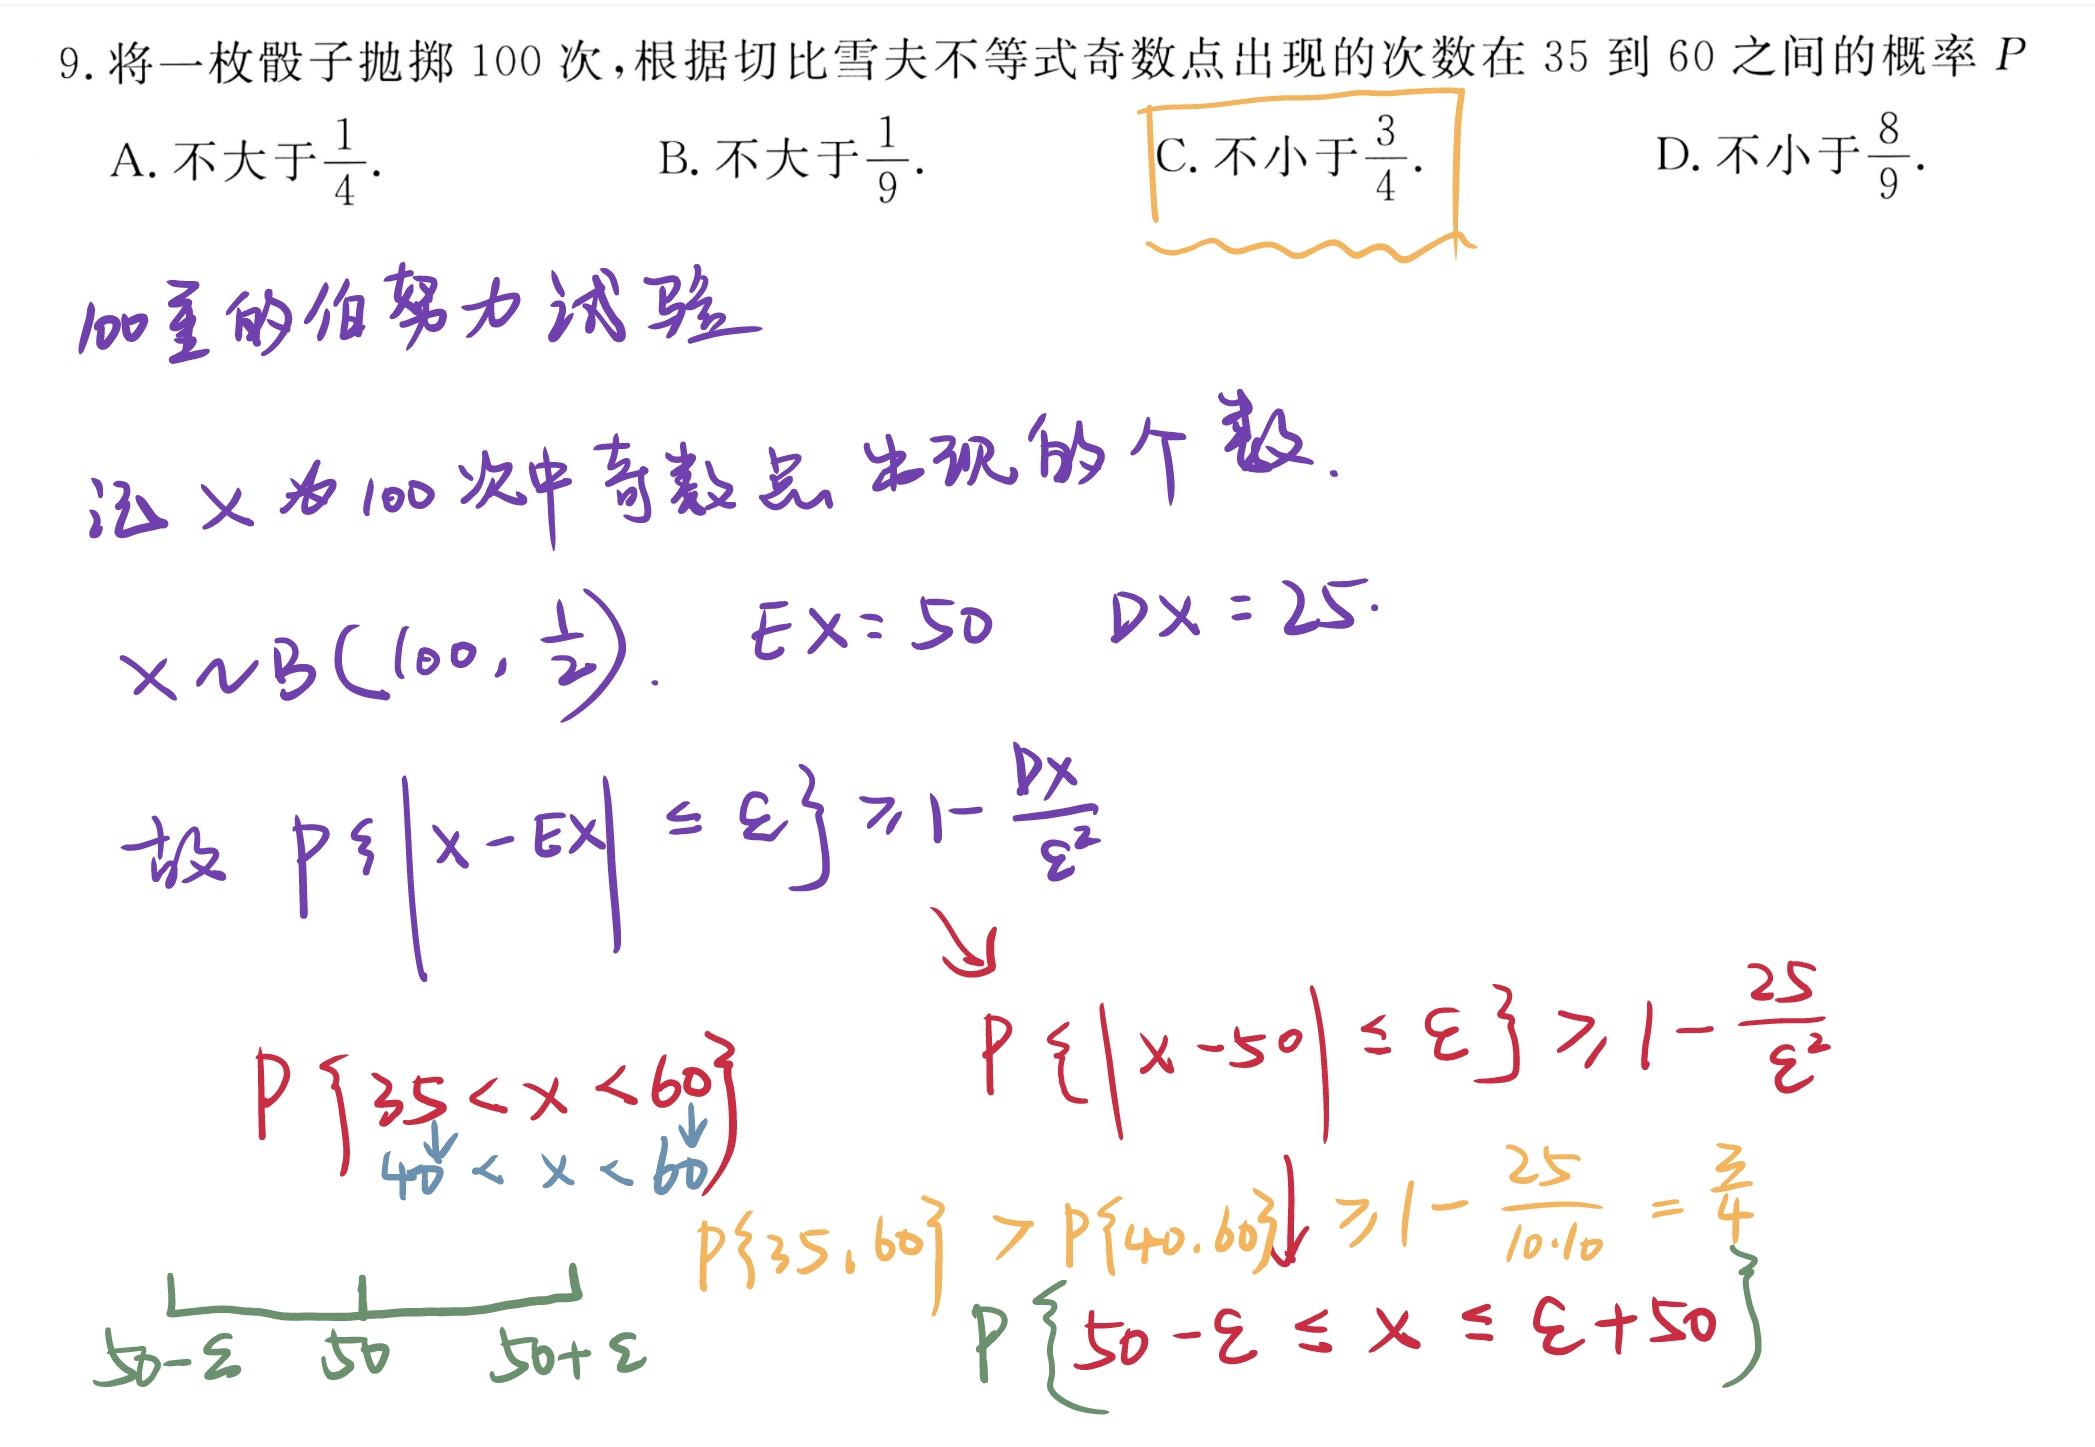 9. 将一枚骰子抛掷 100 次,根据切比雪夫不等式奇数点出现的次数在 35 到 60 之间的概率 P
A. 不大于 1/4. B. 不大于 1/9. C. 不小于 3/4. D. 不小于 8/9.
100重的伯努力试验
记 X 为 100 次中奇数点出现的个数.
X ~ B(100, 1/2). EX = 50 DX = 25.
故 P{|X - EX| ≤ ε} ≥ 1 - DX/ε²
P{|X - 50| ≤ ε} ≥ 1 - 25/ε²
P{35 < X < 60}
40 < X < 60
P{35, 60} > P{40. 60} ≥ 1 - 25/10·10 = 3/4
P{50 - ε ≤ X ≤ ε + 50}
50-ε 50 50+ε